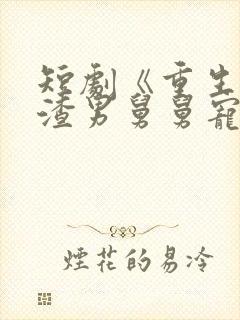 短劇《重生
渣男舅舅寵
煙花的易冷